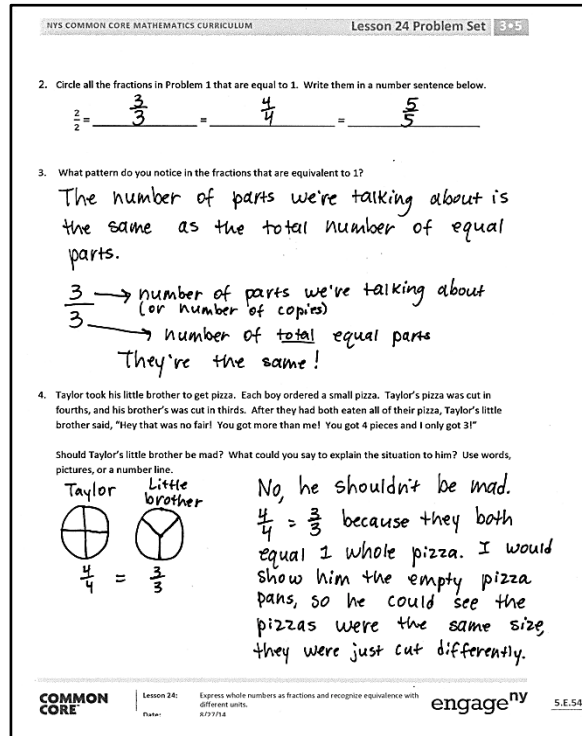 NYS COMMON CORE MATHEMATICS CURRICULUM Lesson 24 Problem Set 3•5
2. Circle all the fractions in Problem 1 that are equal to 1. Write them in a number sentence below.
2/2 = 3/3 = 4/4 = 5/5
3. What pattern do you notice in the fractions that are equivalent to 1?
The number of parts we're talking about is
the same as the total number of equal
parts.
3/3 → number of parts we're talking about
(or number of copies)
→ number of total equal parts
They're the same!
4. Taylor took his little brother to get pizza. Each boy ordered a small pizza. Taylor's pizza was cut in
fourths, and his brother's was cut in thirds. After they had both eaten all of their pizza, Taylor's little
brother said, "Hey that was no fair! You got more than me! You got 4 pieces and I only got 3!"
Should Taylor's little brother be mad? What could you say to explain the situation to him? Use words,
pictures, or a number line.
Taylor Little
brother
4/4 = 3/3
No, he shouldn't be mad.
4/4 = 3/3 because they both
equal 1 whole pizza. I would
show him the empty pizza
pans, so he could see the
pizzas were the same size,
they were just cut differently.
COMMON
CORE
Lesson 24: Express whole numbers as fractions and recognize equivalence with
different units.
Date: 8/27/14
engage ny
5.E.54